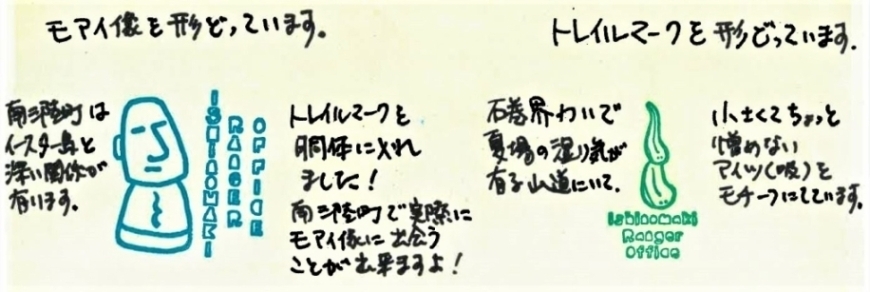 モアイ像を形どっています。
南三陸町は
イースター島と
深い関係が
有ります。
ISHINOMAKI
RANGER
OFFICE
トレイルマークを
胴体に入れ
ました！
南三陸町で実際に
モアイ像に出会う
ことが出来ますよ！
トレイルマークを形どっています。
石巻界わいで
夏場の湿り気が
有る山道にいて、
Ishinomaki
Ranger
Office
小さくてちょっと
憎めない
アイツ(吸)を
モチーフにしています。